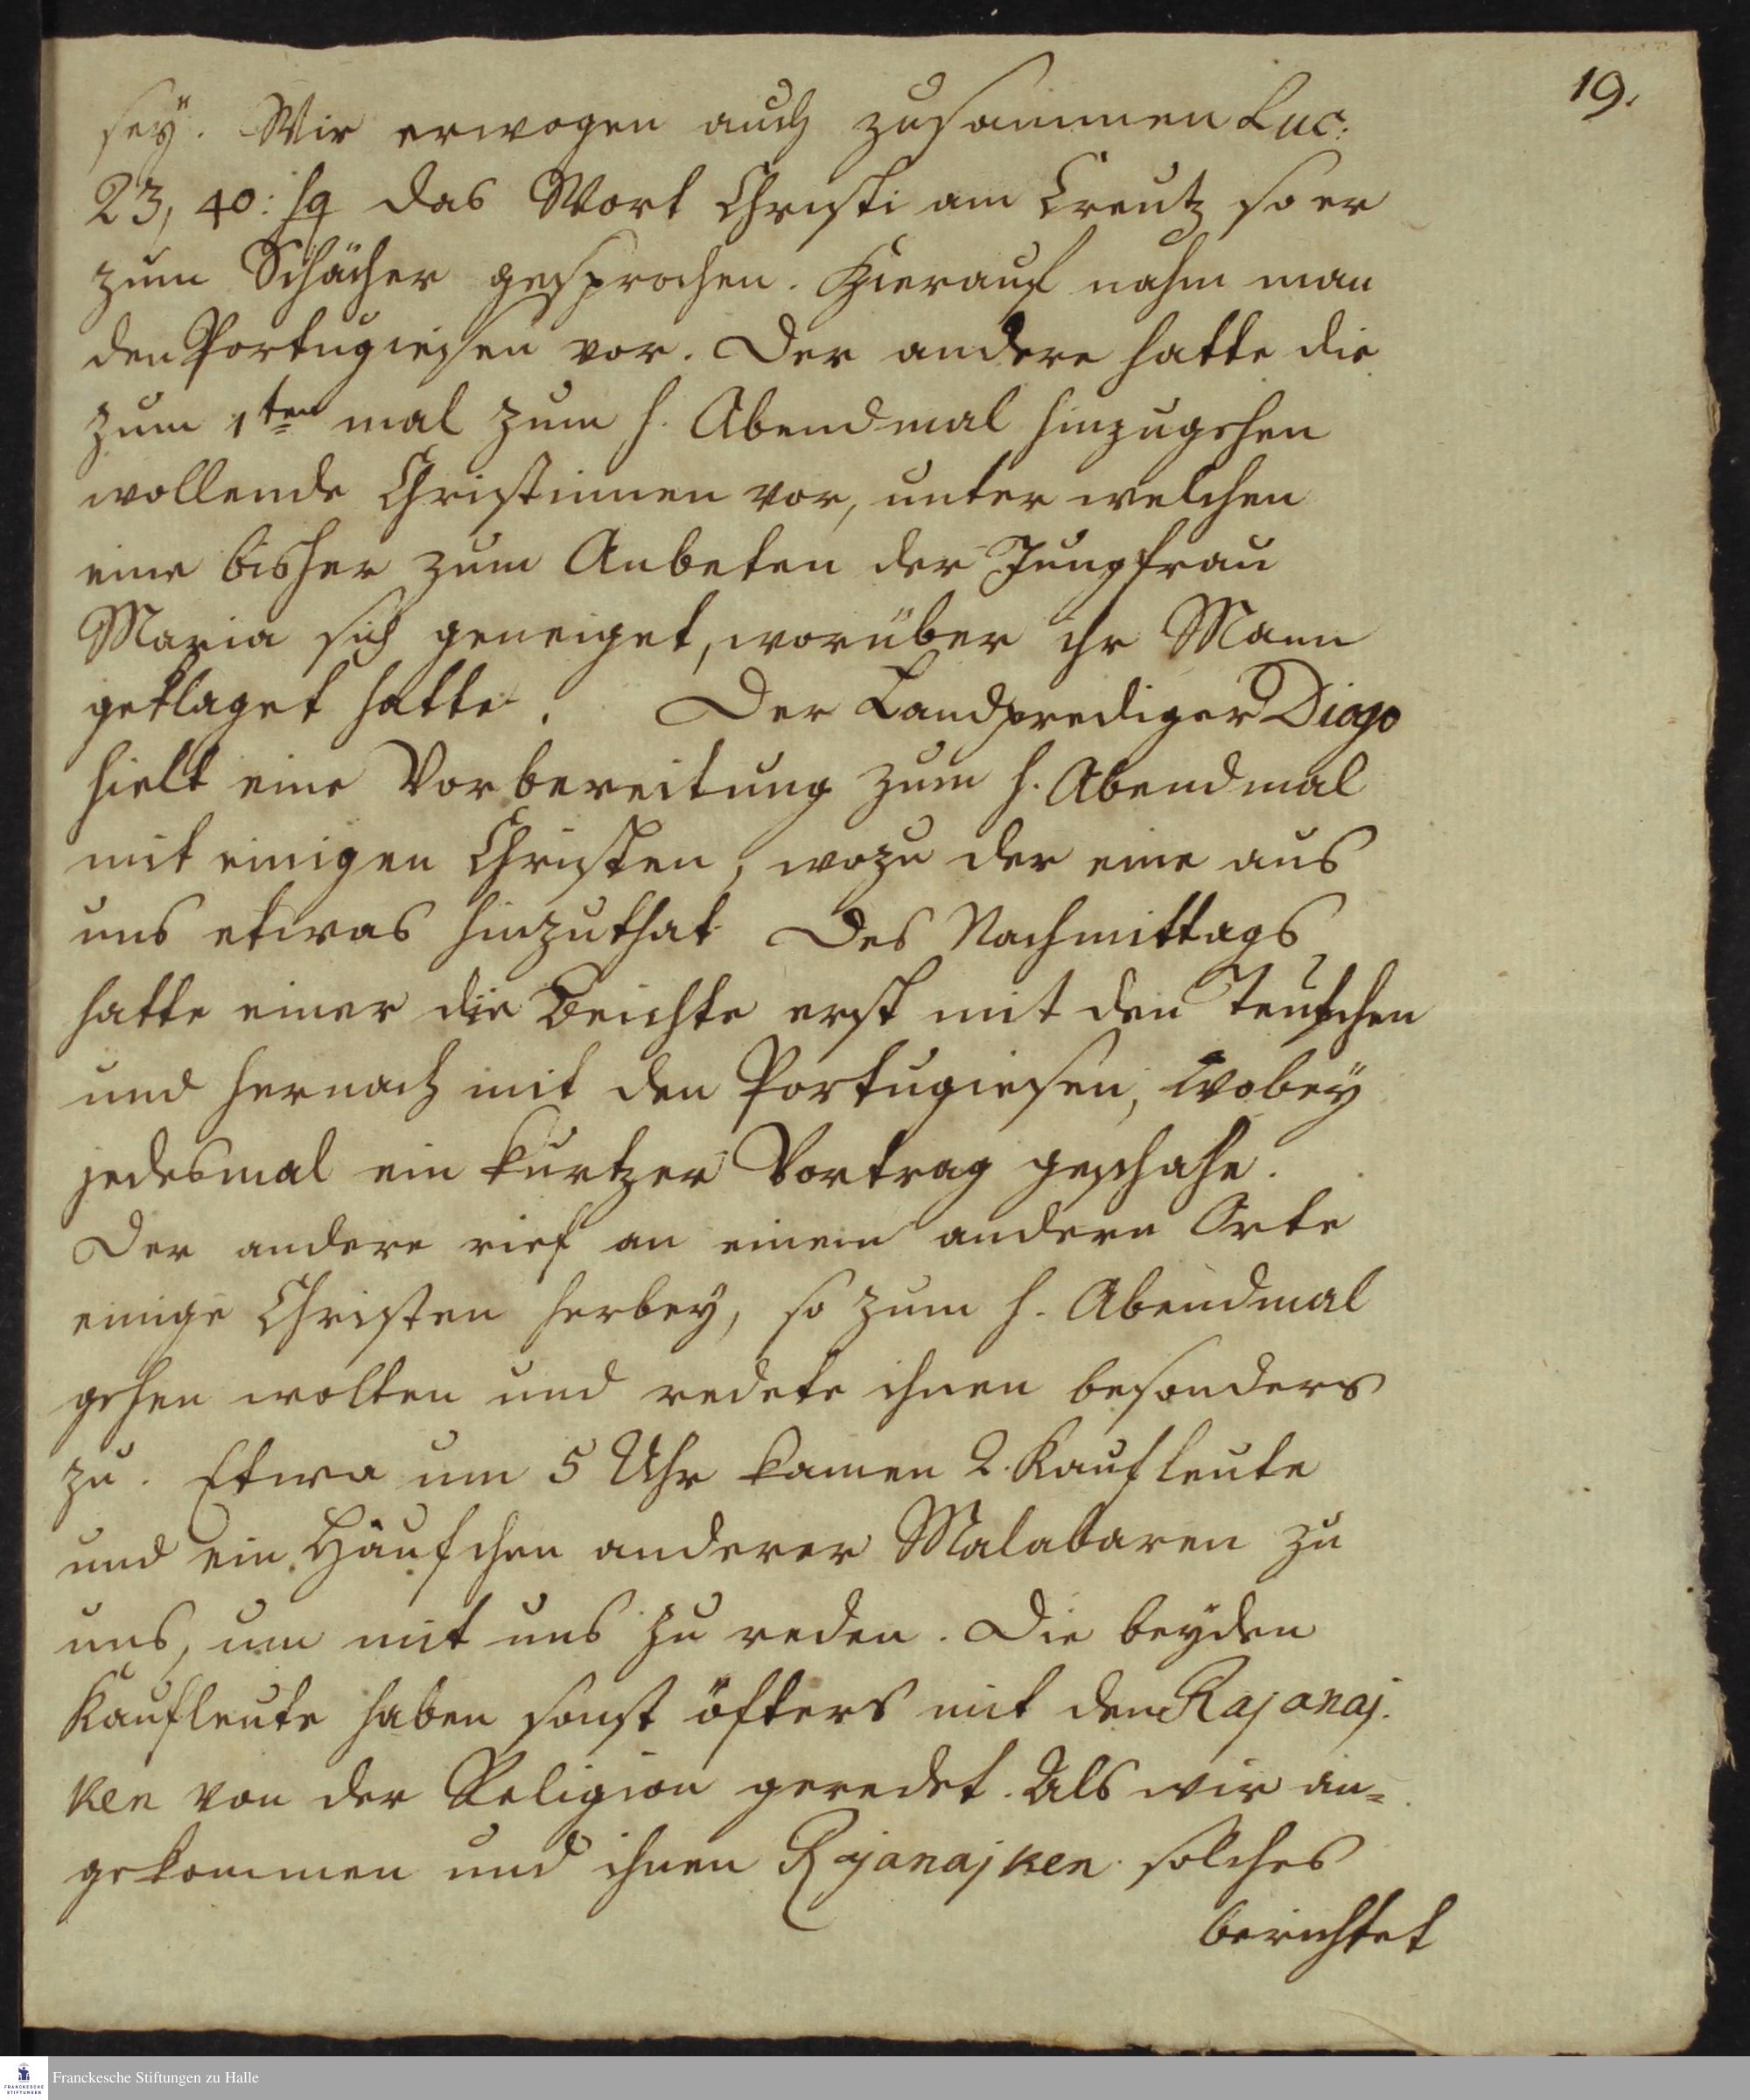 19.
sey. Wir erwogen auch zusammen Luc:
23, 40: sq das Wort Christi am Creutz so er
zum Schächer gesprochen. Hierauf nahm man
den Portugiesen vor. Der andere hatte die
zum 1ten mal zum h. Abendmal hinzugehen
wollende Christinnen vor, unter welchen
eine bisher zum Anbeten der Jungfrau
Maria sich geneiget, worüber ihr Mann
geklaget hatte. Der Landprediger Diogo
hielt eine Vorbereitung zum h. Abendmal
mit einigen Christen, wozu der eine aus
uns etwas hinzuthat Des Nachmittags
hatte einer die Beichte erst mit den Teutschen
und hernach mit den Portugiesen, wobey
jedesmal ein kurtzer Vortrag geschahe.
Der andere rief an einem andern Orte
einige Christen herbey, so zum h. Abendmal
gehen wolten und redete ihnen besonders
zu. Etwa um 5 Uhr kamen 2. Kaufleute
und ein Häufchen anderer Malabaren zu
uns, um mit uns zu reden. Die beyden
Kaufleute haben sonst öfters mit dem Rajanaj-
ken von der Religion geredet. Als wir an-
gekommen und ihnen Rajanajken solches
berichtet
Franckesche Stiftungen zu Halle
FRANCKESCHE
STIFTUNGEN